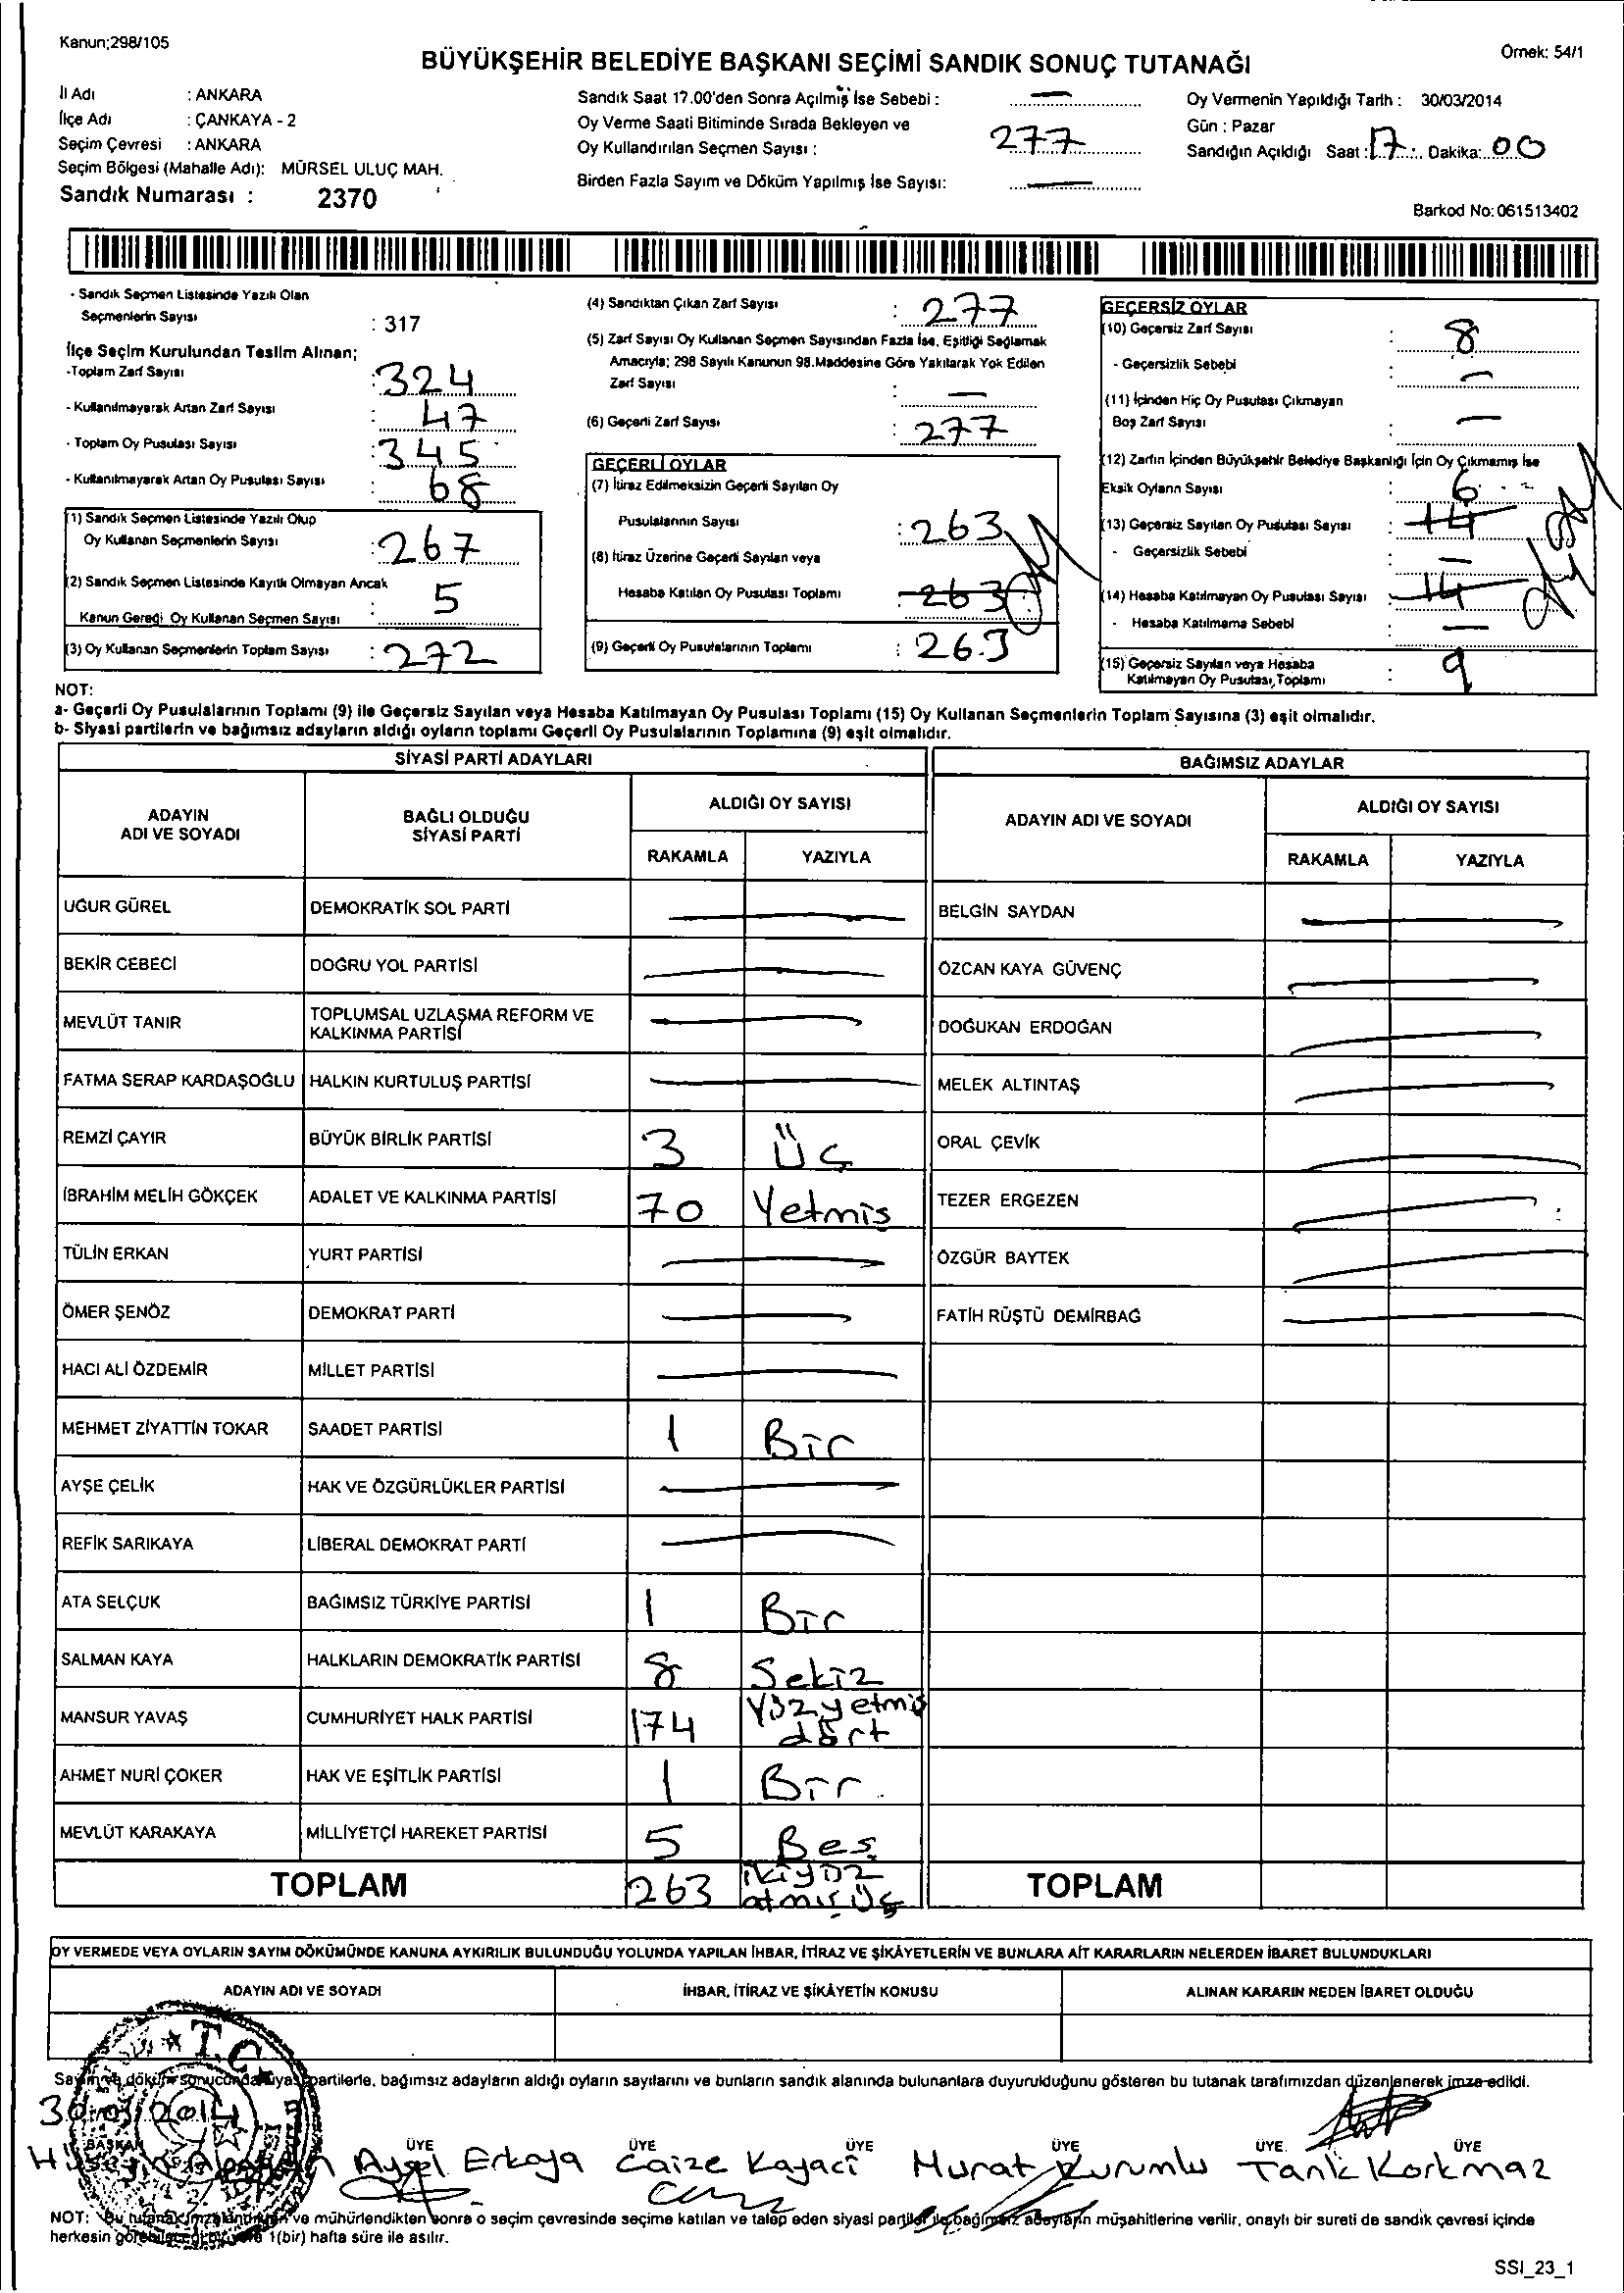 Kanun;298/105
Örnek: 54/1
BÜYÜKŞEHİR BELEDİYE BAŞKANI SEÇİMİ SANDIK SONUÇ TUTANAĞI
İl Adı : ANKARA
İlçe Adı : ÇANKAYA - 2
Seçim Çevresi : ANKARA
Seçim Bölgesi (Mahalle Adı): MÜRSEL ULUÇ MAH.
Sandık Numarası : 2370
Sandık Saat 17.00'den Sonra Açılmış İse Sebebi : —
Oy Verme Saati Bitiminde Sırada Bekleyen ve
Oy Kullandırılan Seçmen Sayısı : 277
Birden Fazla Sayım ve Döküm Yapılmış İse Sayısı: —
Oy Vermenin Yapıldığı Tarih : 30/03/2014
Gün : Pazar
Sandığın Açıldığı Saat : 17 Dakika: 00
Barkod No: 061513402
- Sandık Seçmen Listesinde Yazılı Olan
Seçmenlerin Sayısı : 317
İlçe Seçim Kurulundan Teslim Alınan;
-Toplam Zarf Sayısı : 324
- Kullanılmayarak Artan Zarf Sayısı : 47
- Toplam Oy Pusulası Sayısı : 345
- Kullanılmayarak Artan Oy Pusulası Sayısı : 68
(1) Sandık Seçmen Listesinde Yazılı Olup
Oy Kullanan Seçmenlerin Sayısı : 267
(2) Sandık Seçmen Listesinde Kayıtlı Olmayan Ancak
Kanun Gereği Oy Kullanan Seçmen Sayısı : 5
(3) Oy Kullanan Seçmenlerin Toplam Sayısı : 272
(4) Sandıktan Çıkan Zarf Sayısı : 277
(5) Zarf Sayısı Oy Kullanan Seçmen Sayısından Fazla İse, Eşitliği Sağlamak
Amacıyla; 298 Sayılı Kanunun 98.Maddesine Göre Yakılarak Yok Edilen
Zarf Sayısı : —
(6) Geçerli Zarf Sayısı : 277
GEÇERLİ OYLAR
(7) İtiraz Edilmeksizin Geçerli Sayılan Oy
Pusulalarının Sayısı : 263
(8) İtiraz Üzerine Geçerli Sayılan veya
Hesaba Katılan Oy Pusulası Toplamı : 263
(9) Geçerli Oy Pusulalarının Toplamı : 263
GEÇERSİZ OYLAR
(10) Geçersiz Zarf Sayısı : 8
- Geçersizlik Sebebi : —
(11) İçinden Hiç Oy Pusulası Çıkmayan
Boş Zarf Sayısı : —
(12) Zarfın İçinden Büyükşehir Belediye Başkanlığı İçin Oy Çıkmamış İse
Eksik Oyların Sayısı : 6
(13) Geçersiz Sayılan Oy Pusulası Sayısı : 14
- Geçersizlik Sebebi : —
(14) Hesaba Katılmayan Oy Pusulası Sayısı : 14
- Hesaba Katılmama Sebebi : —
(15) Geçersiz Sayılan veya Hesaba
Katılmayan Oy Pusulası Toplamı : 9
NOT:
a- Geçerli Oy Pusulalarının Toplamı (9) ile Geçersiz Sayılan veya Hesaba Katılmayan Oy Pusulası Toplamı (15) Oy Kullanan Seçmenlerin Toplam Sayısına (3) eşit olmalıdır.
b- Siyasi partilerin ve bağımsız adayların aldığı oyların toplamı Geçerli Oy Pusulalarının Toplamına (9) eşit olmalıdır.
SİYASİ PARTİ ADAYLARI
ADAYIN ADI VE SOYADI BAĞLI OLDUĞU SİYASİ PARTİ ALDIĞI OY SAYISI
RAKAMLA YAZIYLA
UĞUR GÜREL DEMOKRATİK SOL PARTİ —
BEKİR CEBECİ DOĞRU YOL PARTİSİ —
MEVLÜT TANIR TOPLUMSAL UZLAŞMA REFORM VE KALKINMA PARTİSİ —
FATMA SERAP KARDAŞOĞLU HALKIN KURTULUŞ PARTİSİ —
REMZİ ÇAYIR BÜYÜK BİRLİK PARTİSİ 3 Üç
İBRAHİM MELİH GÖKÇEK ADALET VE KALKINMA PARTİSİ 70 Yetmiş
TÜLİN ERKAN YURT PARTİSİ —
ÖMER ŞENÖZ DEMOKRAT PARTİ —
HACI ALİ ÖZDEMİR MİLLET PARTİSİ —
MEHMET ZİYATTİN TOKAR SAADET PARTİSİ 1 Bir
AYŞE ÇELİK HAK VE ÖZGÜRLÜKLER PARTİSİ —
REFİK SARIKAYA LİBERAL DEMOKRAT PARTİ —
ATA SELÇUK BAĞIMSIZ TÜRKİYE PARTİSİ 1 Bir
SALMAN KAYA HALKLARIN DEMOKRATİK PARTİSİ 8 Sekiz
MANSUR YAVAŞ CUMHURİYET HALK PARTİSİ 174 Yüzyetmiş dört
AHMET NURİ ÇOKER HAK VE EŞİTLİK PARTİSİ 1 Bir
MEVLÜT KARAKAYA MİLLİYETÇİ HAREKET PARTİSİ 5 Beş
TOPLAM 263 ikiyüz atmışüç
BAĞIMSIZ ADAYLAR
ADAYIN ADI VE SOYADI ALDIĞI OY SAYISI
RAKAMLA YAZIYLA
BELGİN SAYDAN —
ÖZCAN KAYA GÜVENÇ —
DOĞUKAN ERDOĞAN —
MELEK ALTINTAŞ —
ORAL ÇEVİK —
TEZER ERGEZEN —
ÖZGÜR BAYTEK —
FATİH RÜŞTÜ DEMİRBAĞ —
TOPLAM
OY VERMEDE VEYA OYLARIN SAYIM DÖKÜMÜNDE KANUNA AYKIRILIK BULUNDUĞU YOLUNDA YAPILAN İHBAR, İTİRAZ VE ŞİKÂYETLERİN VE BUNLARA AİT KARARLARIN NELERDEN İBARET BULUNDUKLARI
ADAYIN ADI VE SOYADI İHBAR, İTİRAZ VE ŞİKÂYETİN KONUSU ALINAN KARARIN NEDEN İBARET OLDUĞU
T.C.
Sayım ve döküm sonucunda siyasi partilerle, bağımsız adayların aldığı oyların sayılarını ve bunların sandık alanında bulunanlara duyurulduğunu gösteren bu tutanak tarafımızdan düzenlenerek imza edildi.
30/03/2014
BAŞKAN ÜYE ÜYE ÜYE ÜYE ÜYE ÜYE
Aysel Erkaya Caize Kayacı Murat Kurumlu Tarık Korkmaz
NOT: Bu tutanak imzalandıktan ve mühürlendikten sonra o seçim çevresinde seçime katılan ve talep eden siyasi partiler ile bağımsız adayların müşahitlerine verilir, onaylı bir sureti de sandık çevresi içinde
herkesin görebileceği bir yere 1(bir) hafta süre ile asılır.
SSI_23_1